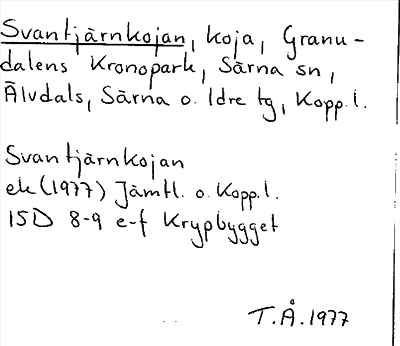 Svantjärnkojan, koja, Granu-
dalens Kronopark, Särna sn,
Älvdals, Särna o. Idre tg, Kopp.l.
Svantjärnkojan
ek (1977) Jämtl. o. Kopp.l.
15D 8-9 e-f Krypbygget
T.Å. 1977